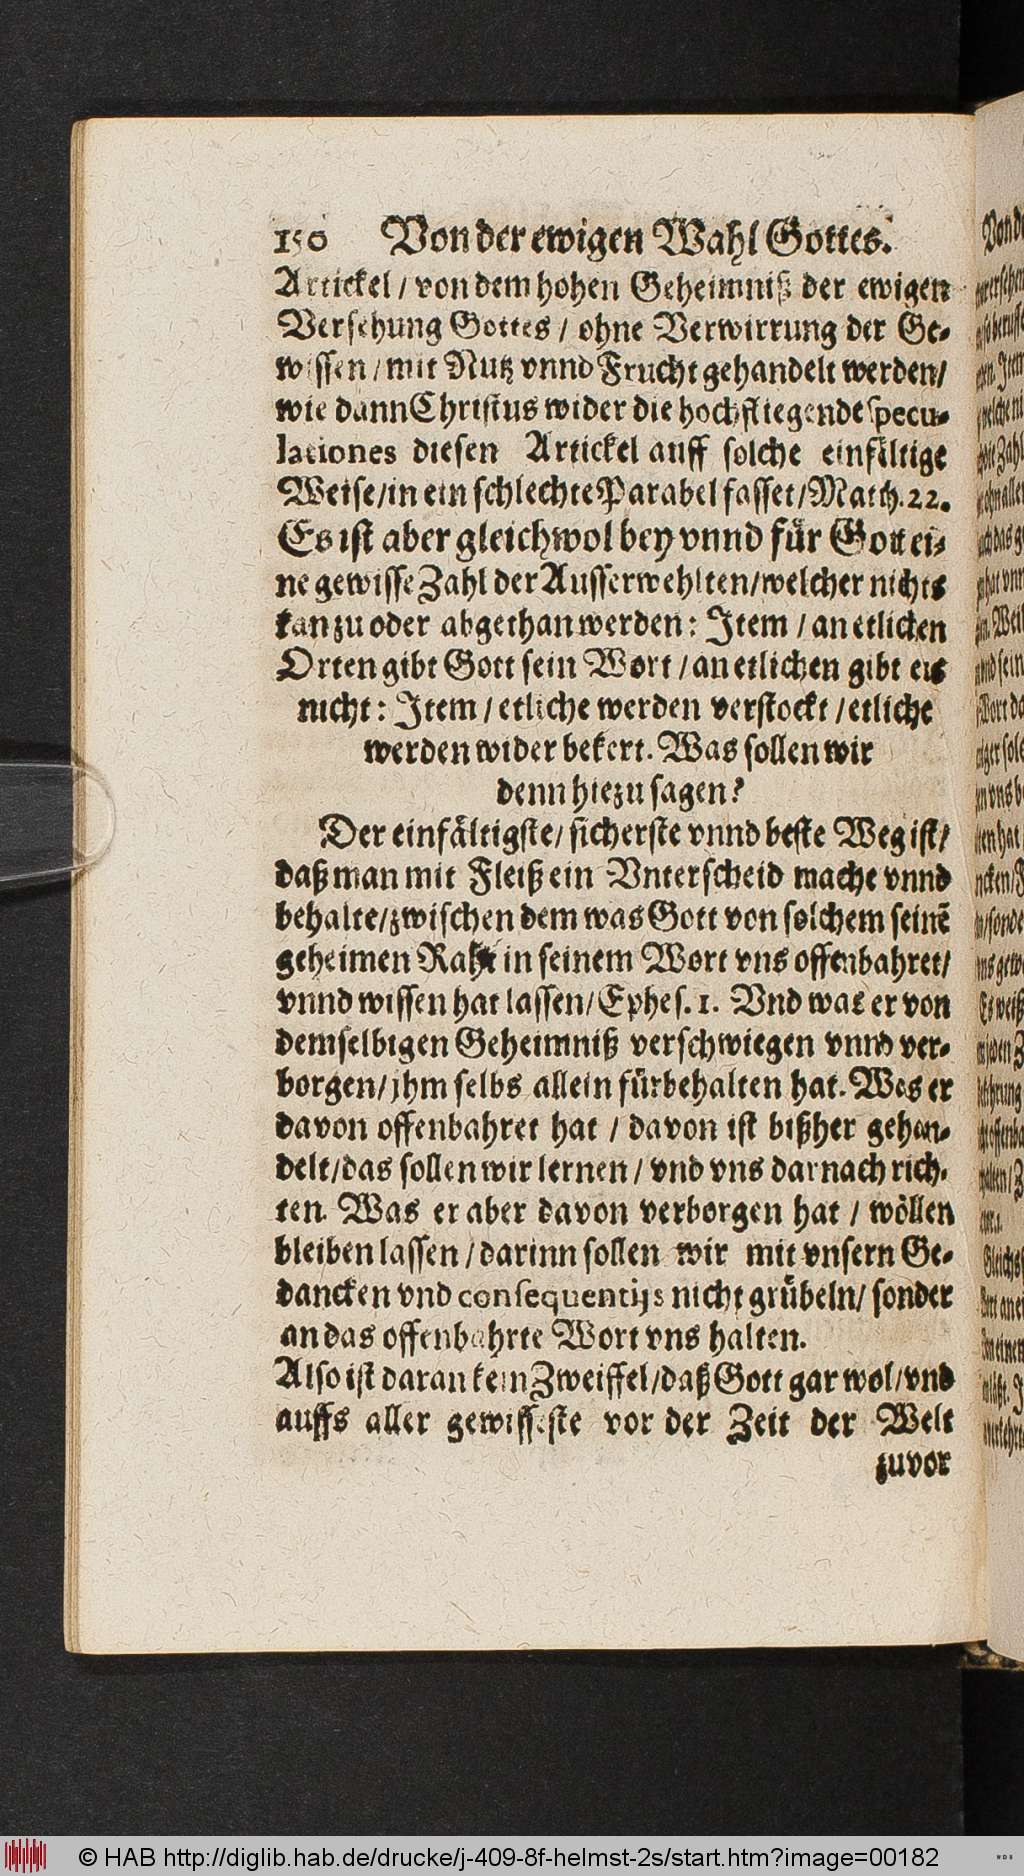 150 Von der ewigen Wahl Gottes.
Artickel / von dem hohen Geheimniß der ewigen
Versehung Gottes / ohne Verwirrung der Ge-
wissen / mit Nutz vnnd Frucht gehandelt werden /
wie dann Christus wider die hochfliegende specu-
lationes diesen Artickel auff solche einfältige
Weise / in ein schlechte Parabel fasset / Matth. 22.
Es ist aber gleichwol bey vnnd für Gott ei-
ne gewisse Zahl der Ausserwehlten / welcher nichts
kan zu oder abgethan werden: Item / an etlichen
Orten gibt Gott sein Wort / an etlichen gibt ers
nicht: Item / etliche werden verstockt / etliche
werden wider bekert. Was sollen wir
denn hiezu sagen?
Der einfältigste / sicherste vnnd beste Weg ist /
daß man mit Fleiß ein Vnterscheid mache vnnd
behalte / zwischen dem was Gott von solchem seinē
geheimen Raht in seinem Wort vns offenbahret /
vnnd wissen hat lassen / Ephes. 1. Vnd was er von
demselbigen Geheimniß verschwiegen vnnd ver-
borgen / jhm selbs allein fürbehalten hat. Was er
davon offenbahret hat / davon ist bißher gehan-
delt / das sollen wir lernen / vnd vns darnach rich-
ten. Was er aber davon verborgen hat / wöllen
bleiben lassen / darinn sollen wir mit vnsern Ge-
dancken vnd consequentijs nicht grübeln / sonder
an das offenbahrte Wort vns halten.
Also ist daran kein Zweiffel / daß Gott gar wol / vnd
auffs aller gewisseste vor der Zeit der Welt
zuvor
© HAB http://diglib.hab.de/drucke/j-409-8f-helmst-2s/start.htm?image=00182